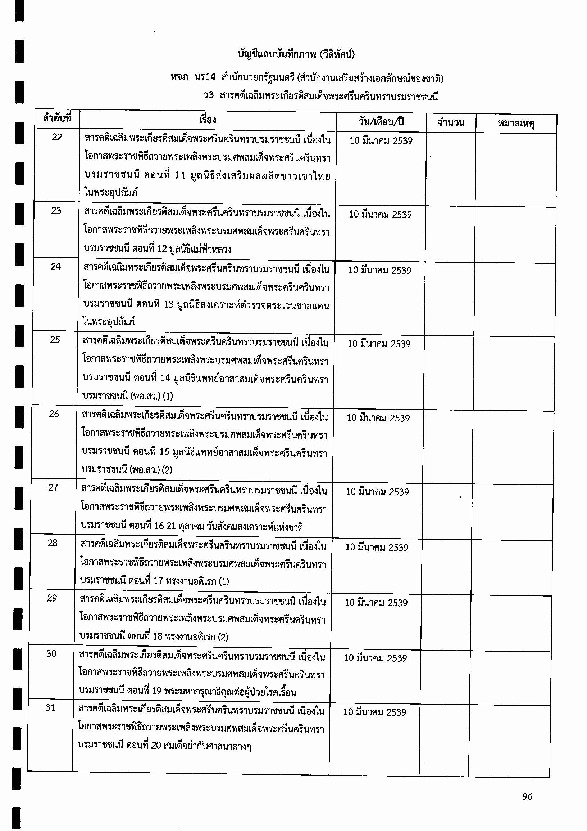 บัญชีแถบบันทึกภาพ (วีดิทัศน์)
หจภ นร14 สำนักนายกรัฐมนตรี (สำนักงานเสริมสร้างเอกลักษณ์ของชาติ)
ว3 สารคดีเฉลิมพระเกียรติสมเด็จพระศรีนครินทราบรมราชชนนี
ลำดับที่ เรื่อง วัน/เดือน/ปี จำนวน หมายเหตุ
22 สารคดีเฉลิมพระเกียรติสมเด็จพระศรีนครินทราบรมราชชนนี เนื่องใน 10 มีนาคม 2539
โอกาสพระราชพิธีถวายพระเพลิงพระบรมศพสมเด็จพระศรีนครินทรา
บรมราชชนนี ตอนที่ 11 มูลนิธิส่งเสริมผลผลิตชาวเขาไทย
ในพระอุปถัมภ์
23 สารคดีเฉลิมพระเกียรติสมเด็จพระศรีนครินทราบรมราชชนนี เนื่องใน 10 มีนาคม 2539
โอกาสพระราชพิธีถวายพระเพลิงพระบรมศพสมเด็จพระศรีนครินทรา
บรมราชชนนี ตอนที่ 12 มูลนิธิแม่ฟ้าหลวง
24 สารคดีเฉลิมพระเกียรติสมเด็จพระศรีนครินทราบรมราชชนนี เนื่องใน 10 มีนาคม 2539
โอกาสพระราชพิธีถวายพระเพลิงพระบรมศพสมเด็จพระศรีนครินทรา
บรมราชชนนี ตอนที่ 13 มูลนิธิสงเคราะห์ตำรวจตระเวนชายแดน
ในพระอุปถัมภ์
25 สารคดีเฉลิมพระเกียรติสมเด็จพระศรีนครินทราบรมราชชนนี เนื่องใน 10 มีนาคม 2539
โอกาสพระราชพิธีถวายพระเพลิงพระบรมศพสมเด็จพระศรีนครินทรา
บรมราชชนนี ตอนที่ 14 มูลนิธิแพทย์อาสาสมเด็จพระศรีนครินทรา
บรมราชชนนี (พอ.สว.) (1)
26 สารคดีเฉลิมพระเกียรติสมเด็จพระศรีนครินทราบรมราชชนนี เนื่องใน 10 มีนาคม 2539
โอกาสพระราชพิธีถวายพระเพลิงพระบรมศพสมเด็จพระศรีนครินทรา
บรมราชชนนี ตอนที่ 15 มูลนิธิแพทย์อาสาสมเด็จพระศรีนครินทรา
บรมราชชนนี (พอ.สว.) (2)
27 สารคดีเฉลิมพระเกียรติสมเด็จพระศรีนครินทราบรมราชชนนี เนื่องใน 10 มีนาคม 2539
โอกาสพระราชพิธีถวายพระเพลิงพระบรมศพสมเด็จพระศรีนครินทรา
บรมราชชนนี ตอนที่ 16 21 ตุลาคม วันสังคมสงเคราะห์แห่งชาติ
28 สารคดีเฉลิมพระเกียรติสมเด็จพระศรีนครินทราบรมราชชนนี เนื่องใน 10 มีนาคม 2539
โอกาสพระราชพิธีถวายพระเพลิงพระบรมศพสมเด็จพระศรีนครินทรา
บรมราชชนนี ตอนที่ 17 ทรงงานอดิเรก (1)
29 สารคดีเฉลิมพระเกียรติสมเด็จพระศรีนครินทราบรมราชชนนี เนื่องใน 10 มีนาคม 2539
โอกาสพระราชพิธีถวายพระเพลิงพระบรมศพสมเด็จพระศรีนครินทรา
บรมราชชนนี ตอนที่ 18 ทรงงานอดิเรก (2)
30 สารคดีเฉลิมพระเกียรติสมเด็จพระศรีนครินทราบรมราชชนนี เนื่องใน 10 มีนาคม 2539
โอกาสพระราชพิธีถวายพระเพลิงพระบรมศพสมเด็จพระศรีนครินทรา
บรมราชชนนี ตอนที่ 19 พระมหากรุณาธิคุณต่อผู้ป่วยโรคเรื้อน
31 สารคดีเฉลิมพระเกียรติสมเด็จพระศรีนครินทราบรมราชชนนี เนื่องใน 10 มีนาคม 2539
โอกาสพระราชพิธีถวายพระเพลิงพระบรมศพสมเด็จพระศรีนครินทรา
บรมราชชนนี ตอนที่ 20 สมเด็จย่ากับศาสนาต่างๆ
96